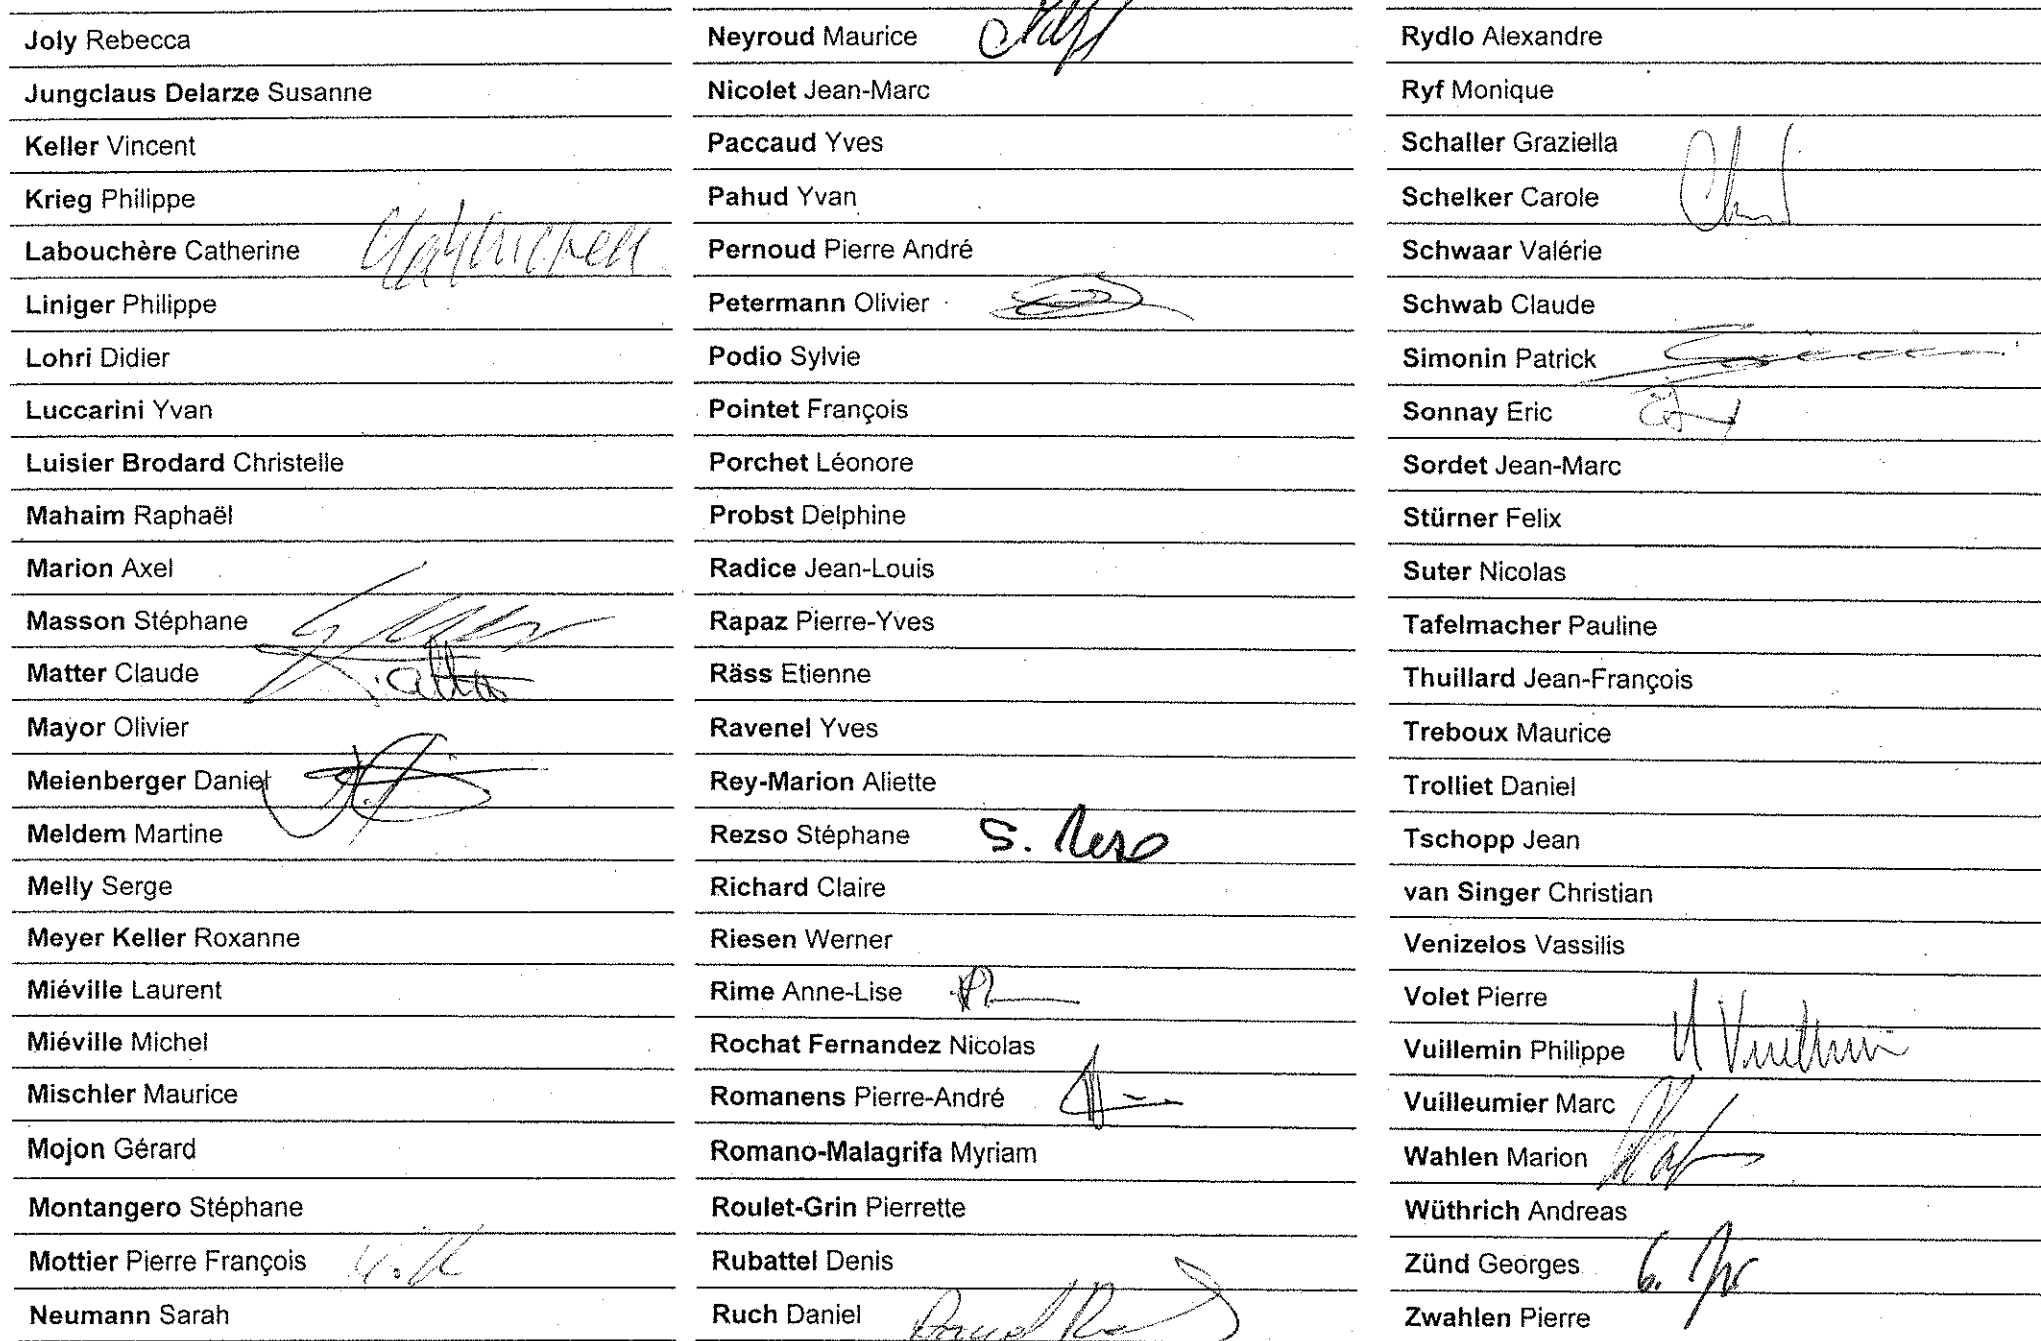 Joly Rebecca
Jungclaus Delarze Susanne
Keller Vincent
Krieg Philippe
Labouchère Catherine
Liniger Philippe
Lohri Didier
Luccarini Yvan
Luisier Brodard Christelle
Mahaim Raphaël
Marion Axel
Masson Stéphane
Matter Claude
Mayor Olivier
Meienberger Daniel
Meldem Martine
Melly Serge
Meyer Keller Roxanne
Miéville Laurent
Miéville Michel
Mischler Maurice
Mojon Gérard
Montangero Stéphane
Mottier Pierre François
Neumann Sarah
Neyroud Maurice
Nicolet Jean-Marc
Paccaud Yves
Pahud Yvan
Pernoud Pierre André
Petermann Olivier
Podio Sylvie
Pointet François
Porchet Léonore
Probst Delphine
Radice Jean-Louis
Rapaz Pierre-Yves
Räss Etienne
Ravenel Yves
Rey-Marion Aliette
Rezso Stéphane
Richard Claire
Riesen Werner
Rime Anne-Lise
Rochat Fernandez Nicolas
Romanens Pierre-André
Romano-Malagrifa Myriam
Roulet-Grin Pierrette
Rubattel Denis
Ruch Daniel
Rydlo Alexandre
Ryf Monique
Schaller Graziella
Schelker Carole
Schwaar Valérie
Schwab Claude
Simonin Patrick
Sonnay Eric
Sordet Jean-Marc
Stürner Felix
Suter Nicolas
Tafelmacher Pauline
Thuillard Jean-François
Treboux Maurice
Trolliet Daniel
Tschopp Jean
van Singer Christian
Venizelos Vassilis
Volet Pierre
Vuillemin Philippe
Vuilleumier Marc
Wahlen Marion
Wüthrich Andreas
Zünd Georges
Zwahlen Pierre